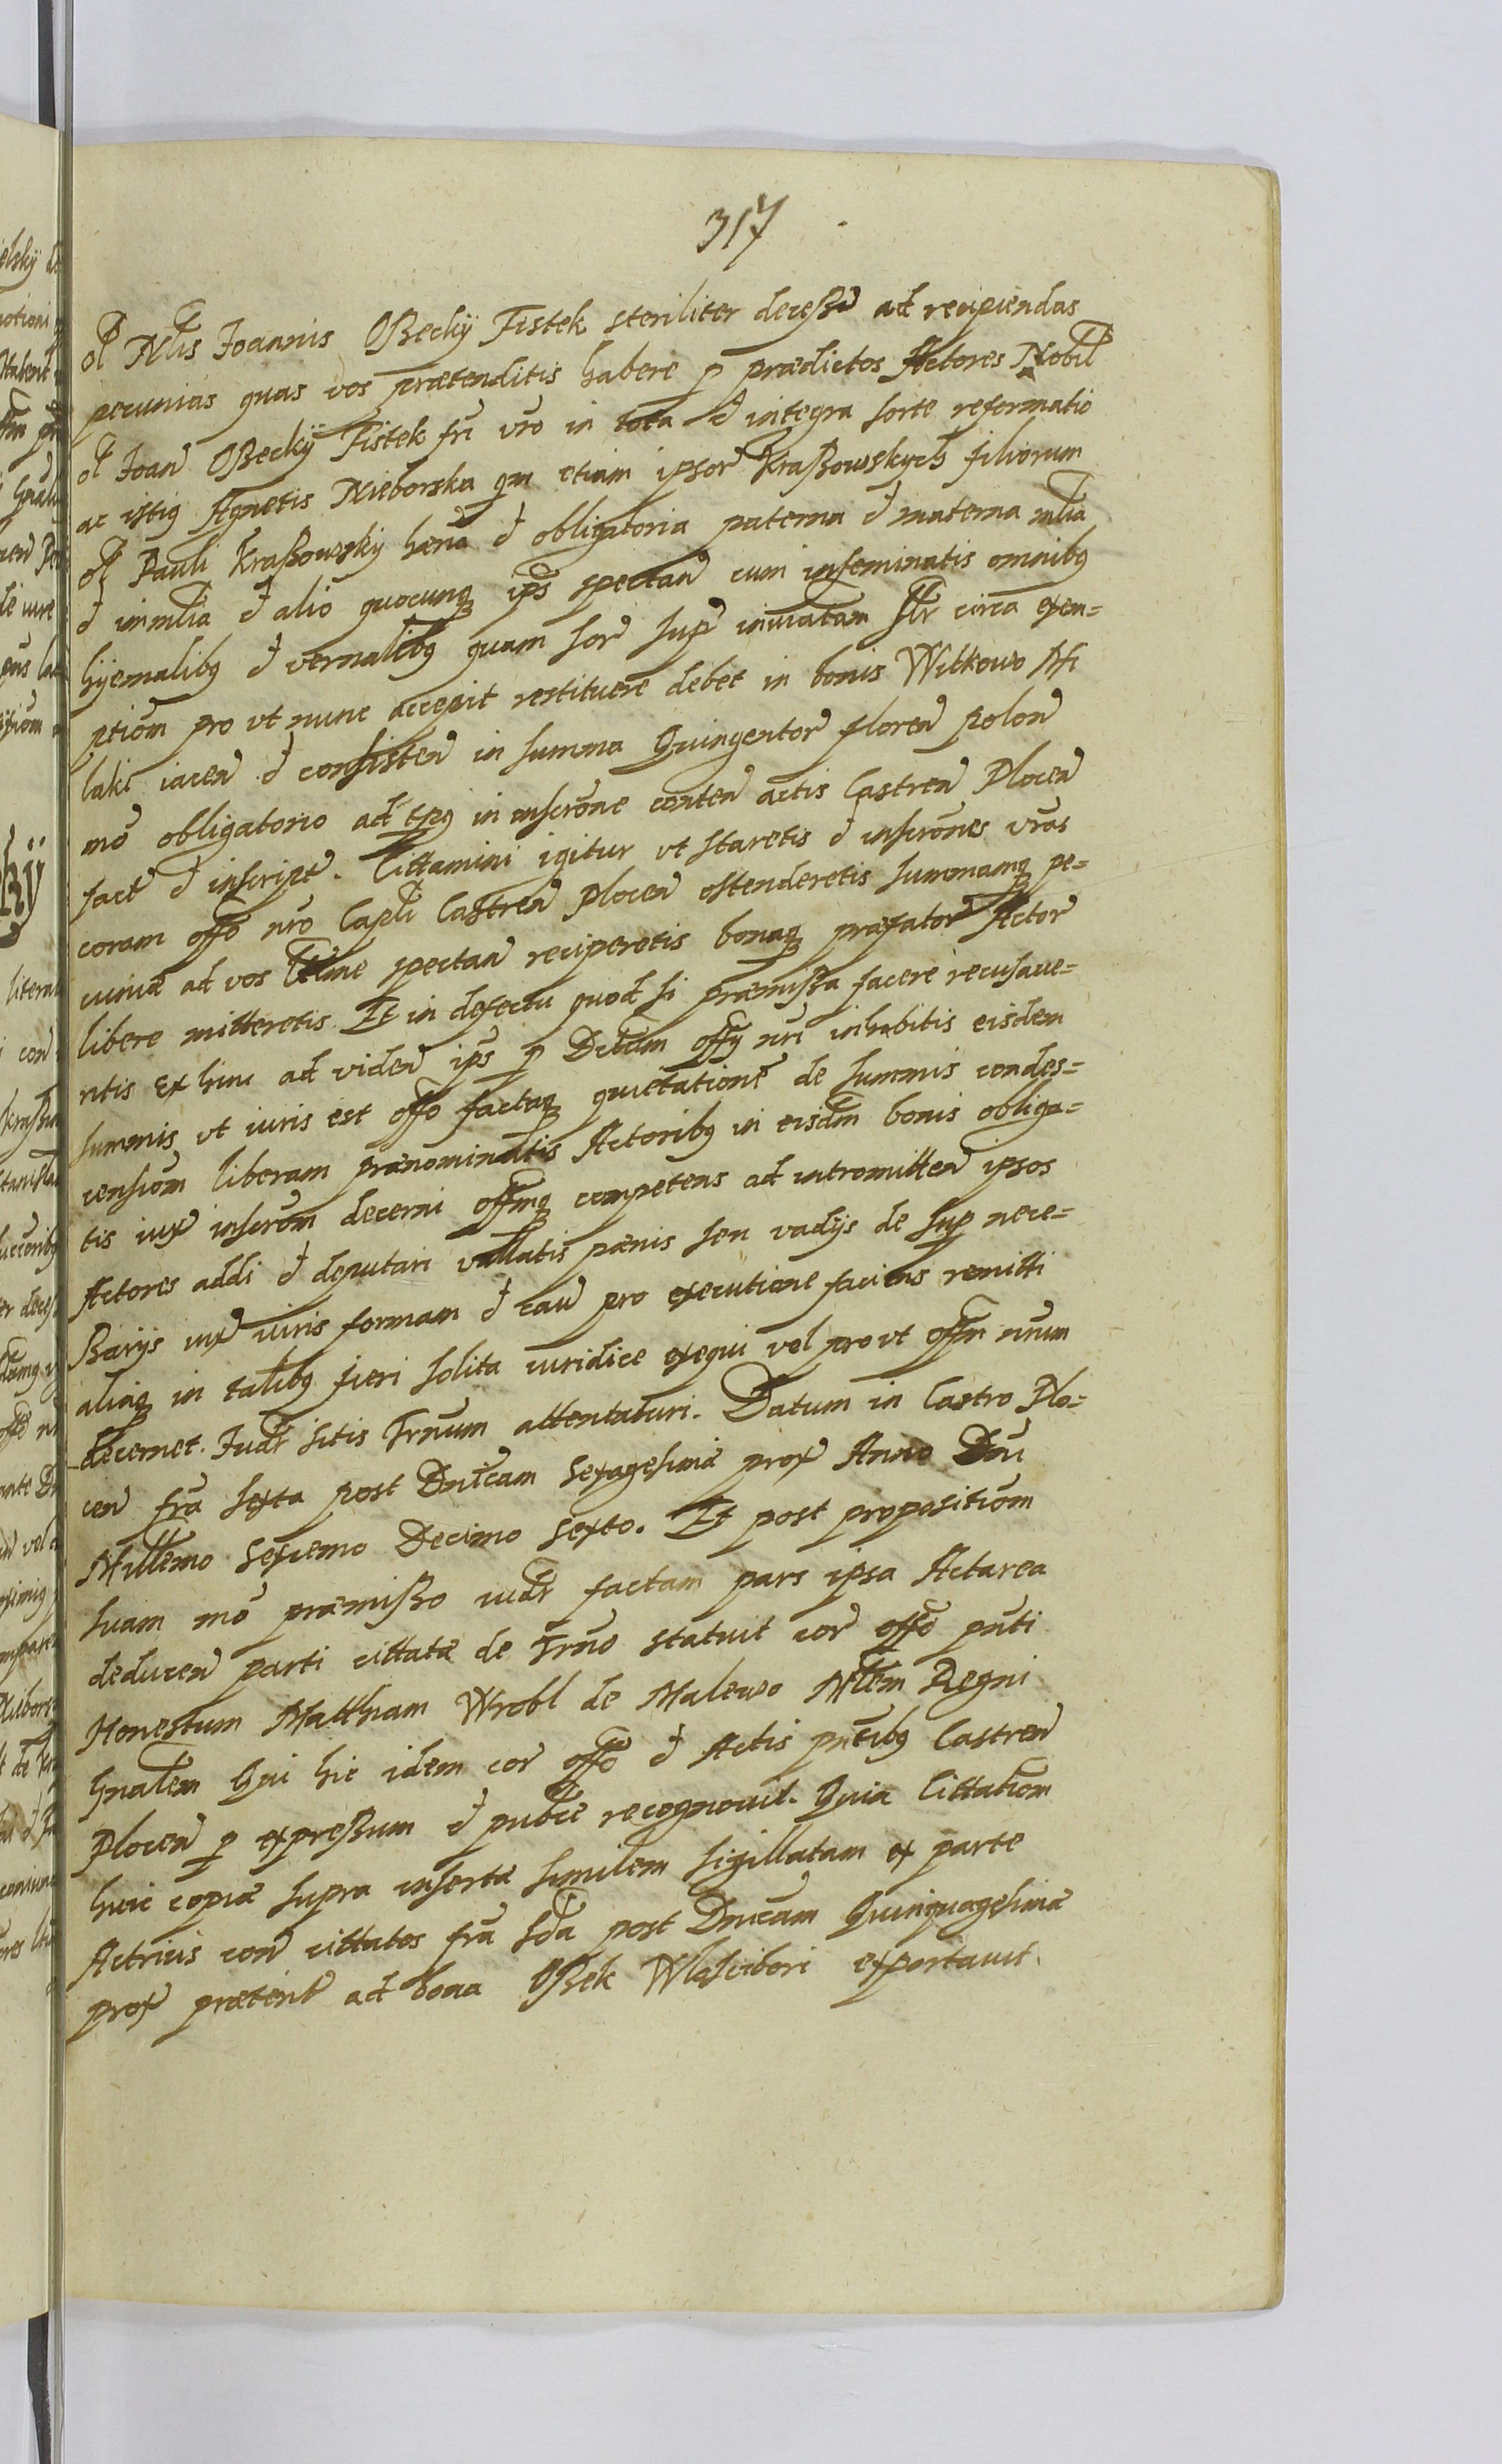 317
ol Nlis Joannis Oßeckÿ Fistek steriliter deceßit ad recipiendas
pecunias quas vos prætenditis habere p prædictos Actores Nobil
ol Joan Oßeckÿ Fistek fri vro in tota et integra sorte reformatio
ac istiq Agnetis Nieborska qm etiam ipsor Kraßowskych filiorum
ol Pauli Kraßowskÿ hæna et obligatoria paterna et materna mlia
et inmlia et alio quocunq ips spectan cum inseminatis omnibq
hÿemalibq et vernalibq quam sor sup inuiatam str circa exen=
ptiom pro vt nunc accepit restituere debet in bonis Witkowo Mi
laki iacen et consisten in summa Quingentor floren polon
mo obligatorio ad tpq in inscrone conten actis Castren Plocen
fact et inscript. Cittamini igitur vt staretis et inscrones vras
coram offo nro Capli Castren Plocen ostenderetis summamq pe=
cuniæ ad vos ltime spectan reciperetis bonaq præfator Actor
libere mitteretis. Et in defectu quod si præmißa facere recusaue=
ritis ex hinc ad viden ips p Dctam offÿ nri inhibitis eisdem
summis vt iuris est offo factaq quietatione de summis condes=
censiom liberam prænominatis Actoribq in eisdm bonis obliga=
tis iux inscrom decerni offmq competens ad intromitten ipsos
Actores addi et deputari vallatis pænis seu vadÿs de sup nece=
ßarÿs iux iuris formam et cau pro executione faciens remitti
aliaq in talibq fieri solita iuridice exequi vel pro vt offm nrum
decernet. Judr sitis Trnum attentaturi. Datum in Castro Plo=
cen fra sexta post Dnicam Sexagesimæ prox Anno Dni
Millemo Sexcemo Decimo Sexto. Et post propositiom
suam mo præmißo iudr factam pars ipsa Actorea
deducen parti cittatæ de Trno statuit cor offo pnti
Honestum Matthiam Wrobl de Malewo Mlem Regni
Gnalem Qui hic idem cor offo et Actis pntibq Castren
Plocen p expreßum et publce recognouit. Quia Cittatiom
huic copiæ supra insertæ similem sigillatam ex parte
Actricis con cittatos fra sda post Dnicam Quinquagesimæ
prox præterit ad bona Oßek Wlascibori exportauit